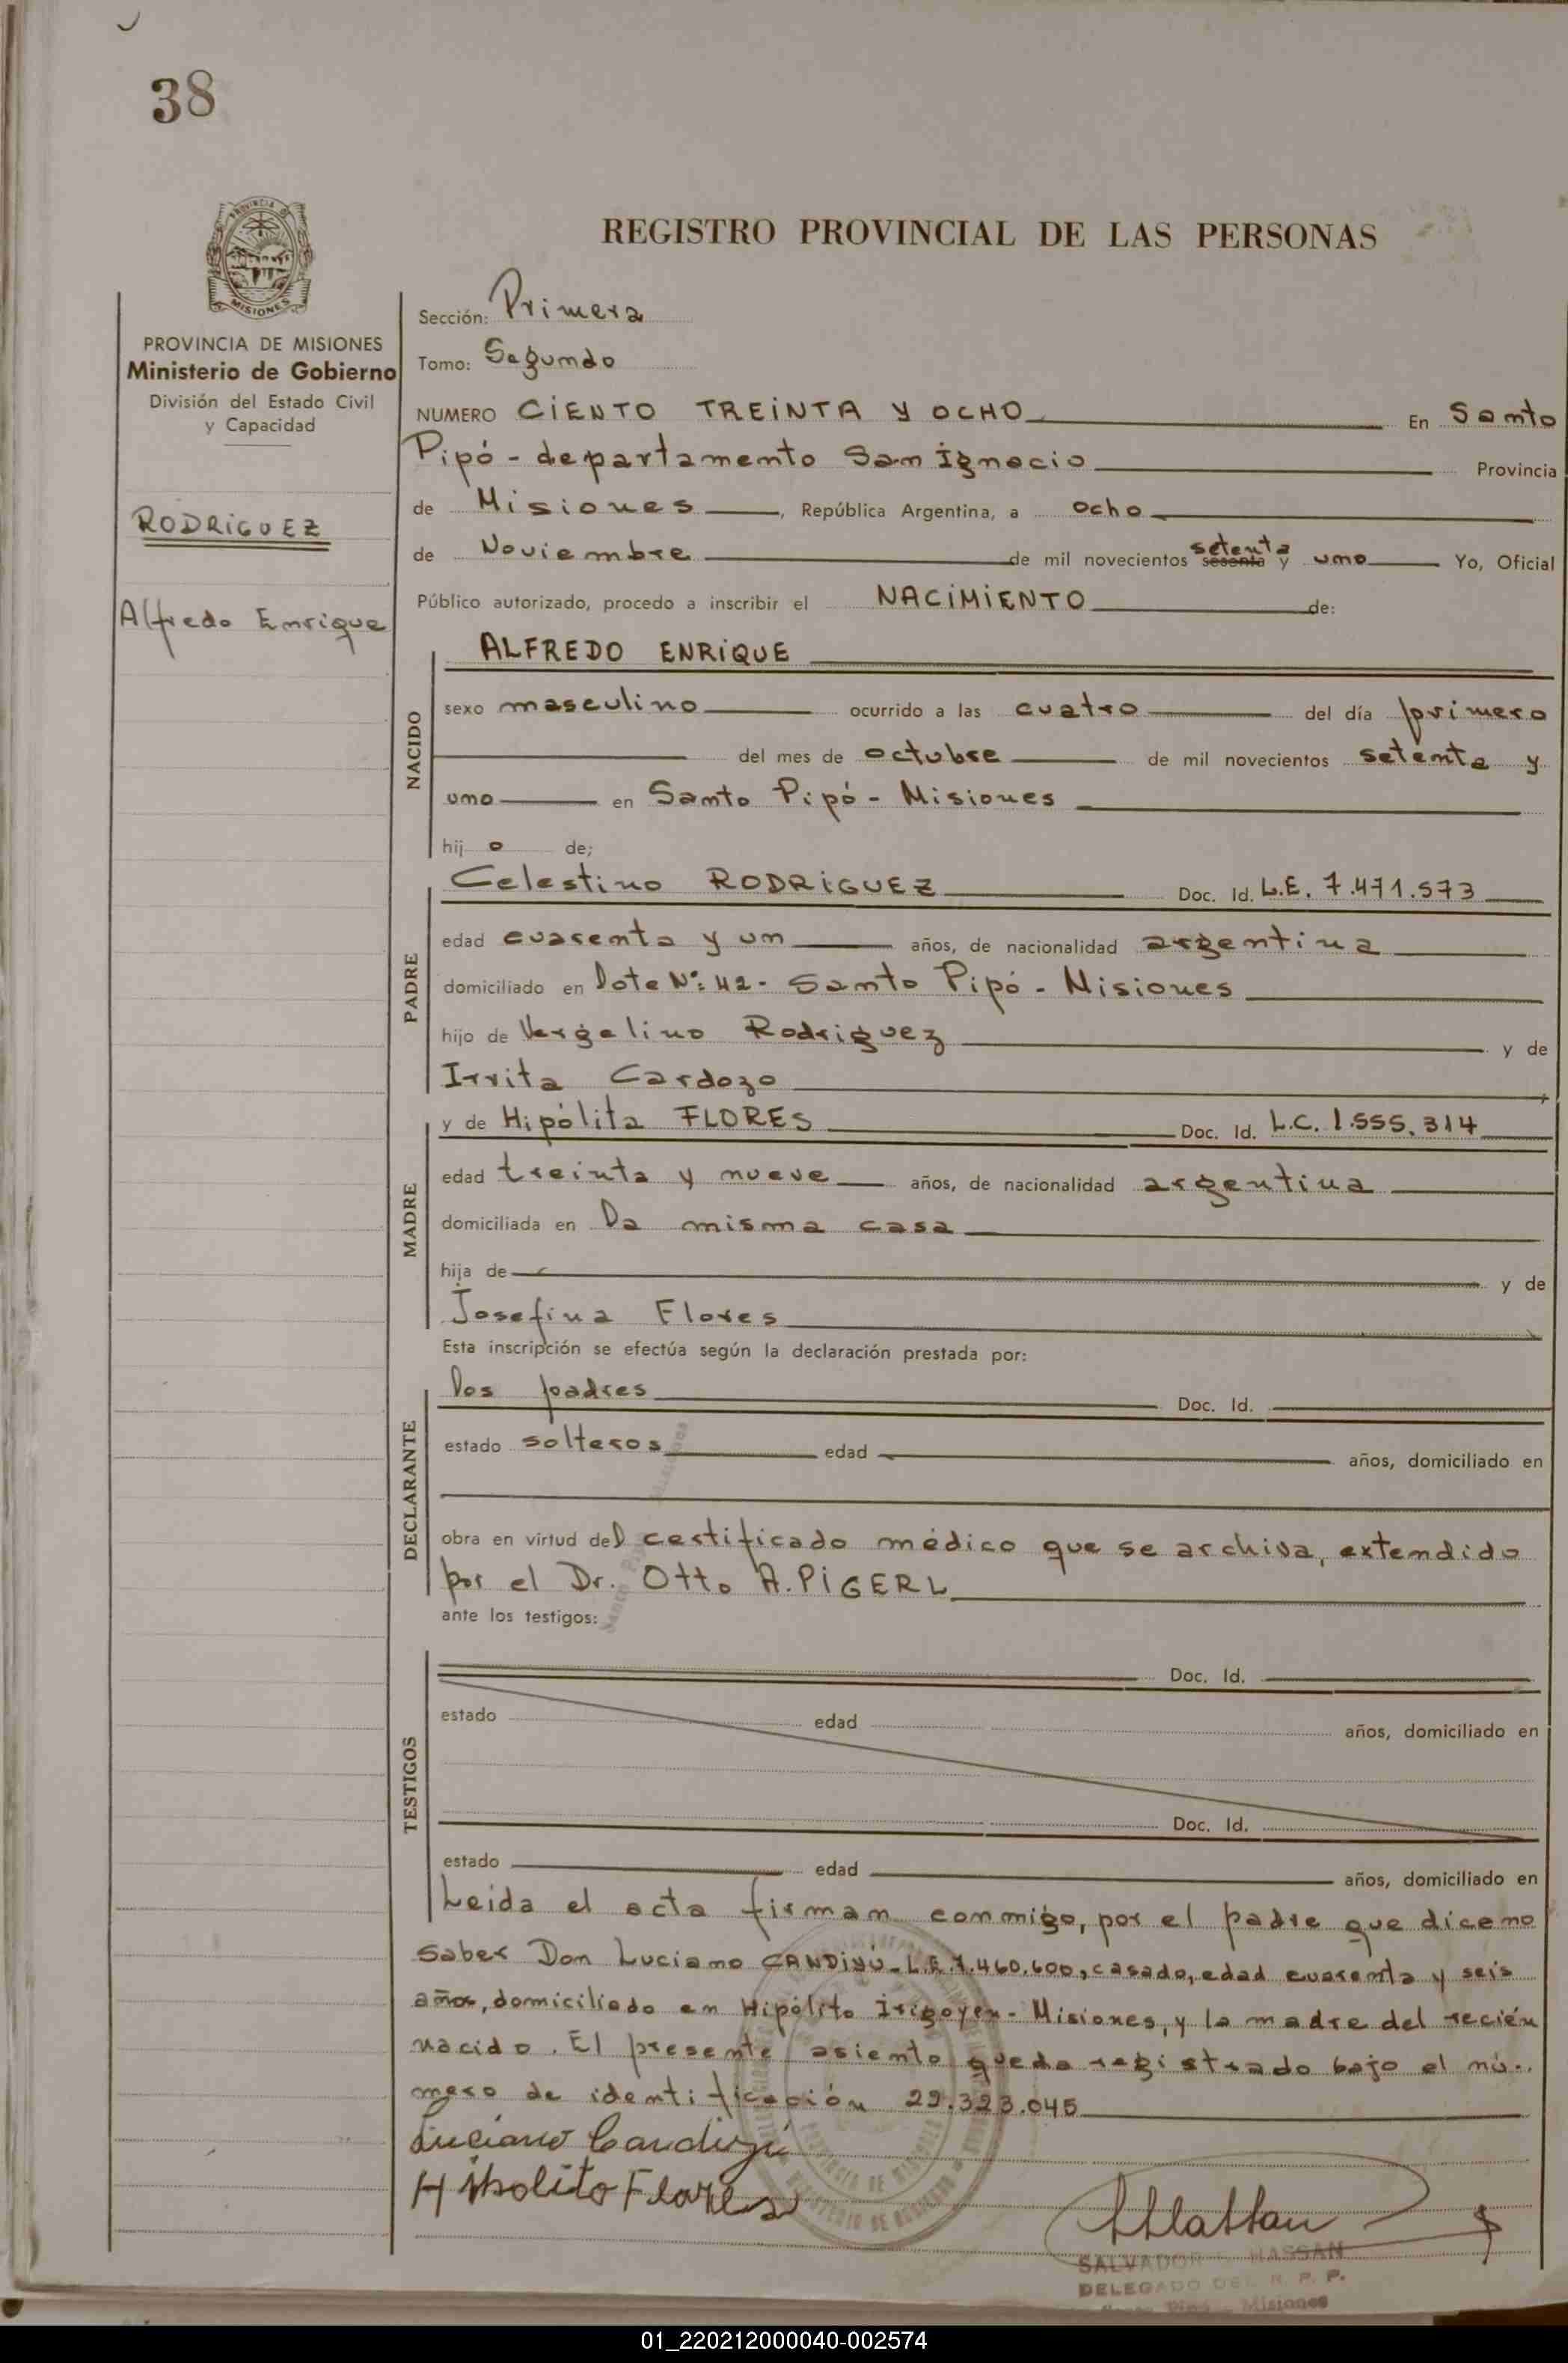 38
REGISTRO PROVINCIAL DE LAS PERSONAS
PROVINCIA DE
MISIONES
PROVINCIA DE MISIONES
Ministerio de Gobierno
División del Estado Civil
y Capacidad
RODRIGUEZ
Alfredo Enrique
Sección: Primera
Tomo: Segundo
NUMERO CIENTO TREINTA Y OCHO En Santo
Pipó - departamento San Ignacio Provincia
de Misiones, República Argentina, a ocho
de Noviembre de mil novecientos setenta sesenta y uno Yo, Oficial
Público autorizado, procedo a inscribir el NACIMIENTO de:
NACIDO
ALFREDO ENRIQUE
sexo masculino ocurrido a las cuatro del día primero
del mes de octubre de mil novecientos setenta y
uno en Santo Pipó - Misiones
hijo de;
PADRE
Celestino RODRIGUEZ Doc. Id. L.E. 7.471.573
edad cuarenta y un años, de nacionalidad argentina
domiciliado en lote Nº: 42 - Santo Pipó - Misiones
hijo de Vergelino Rodriguez y de
Irrita Cardozo
MADRE
y de Hipólita FLORES Doc. Id. L.C. 1.555.314
edad treinta y nueve años, de nacionalidad argentina
domiciliada en la misma casa
hija de y de
Josefina Flores
Esta inscripción se efectúa según la declaración prestada por:
DECLARANTE
los padres Doc. Id.
estado solteros edad años, domiciliado en
obra en virtud del certificado médico que se archiva, extendido
por el Dr. Otto A. PIGERL
ante los testigos:
TESTIGOS
Doc. Id.
estado edad años, domiciliado en
Doc. Id.
estado edad años, domiciliado en
Leida el acta firman conmigo, por el padre que dice no
saber Don Luciano CANDIYÚ - L.E. 7.460.600, casado, edad cuarenta y seis
años, domiciliado en Hipólito Irigoyen - Misiones, y la madre del recién
nacido. El presente asiento queda registrado bajo el nú-
mero de identificación 22.323.045
Luciano Candiyú
Hipolito Flores
SALVADOR HASSAN
DELEGADO DEL R. P. P.
Santo Pipó - Misiones
01_220212000040-002574